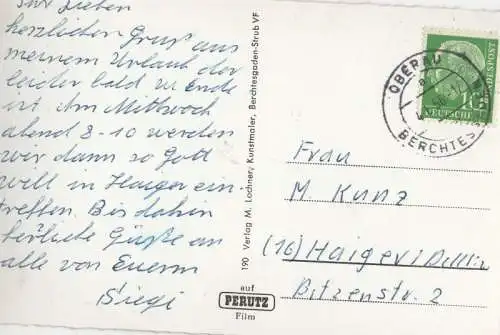 Ihr Lieben
herzlichen Gruß aus
meinem Urlaub der
leider bald zu Ende
ist. Am Mittwoch
abend 8-10 werden
wir dann so Gott
will in Haiger ein-
treffen. Bis dahin
herzliche Grüße an
alle von Euerm
Siegi
190 Verlag M. Lochner, Kunstmaler, Berchtesgaden-Strub VF
auf
PERUTZ
Film
OBERAU
BERCHTES
DEUTSCHE
BUNDESPOST
10
Frau
M Kunz
(16) Haiger/Dillkr
Bitzenstr. 2